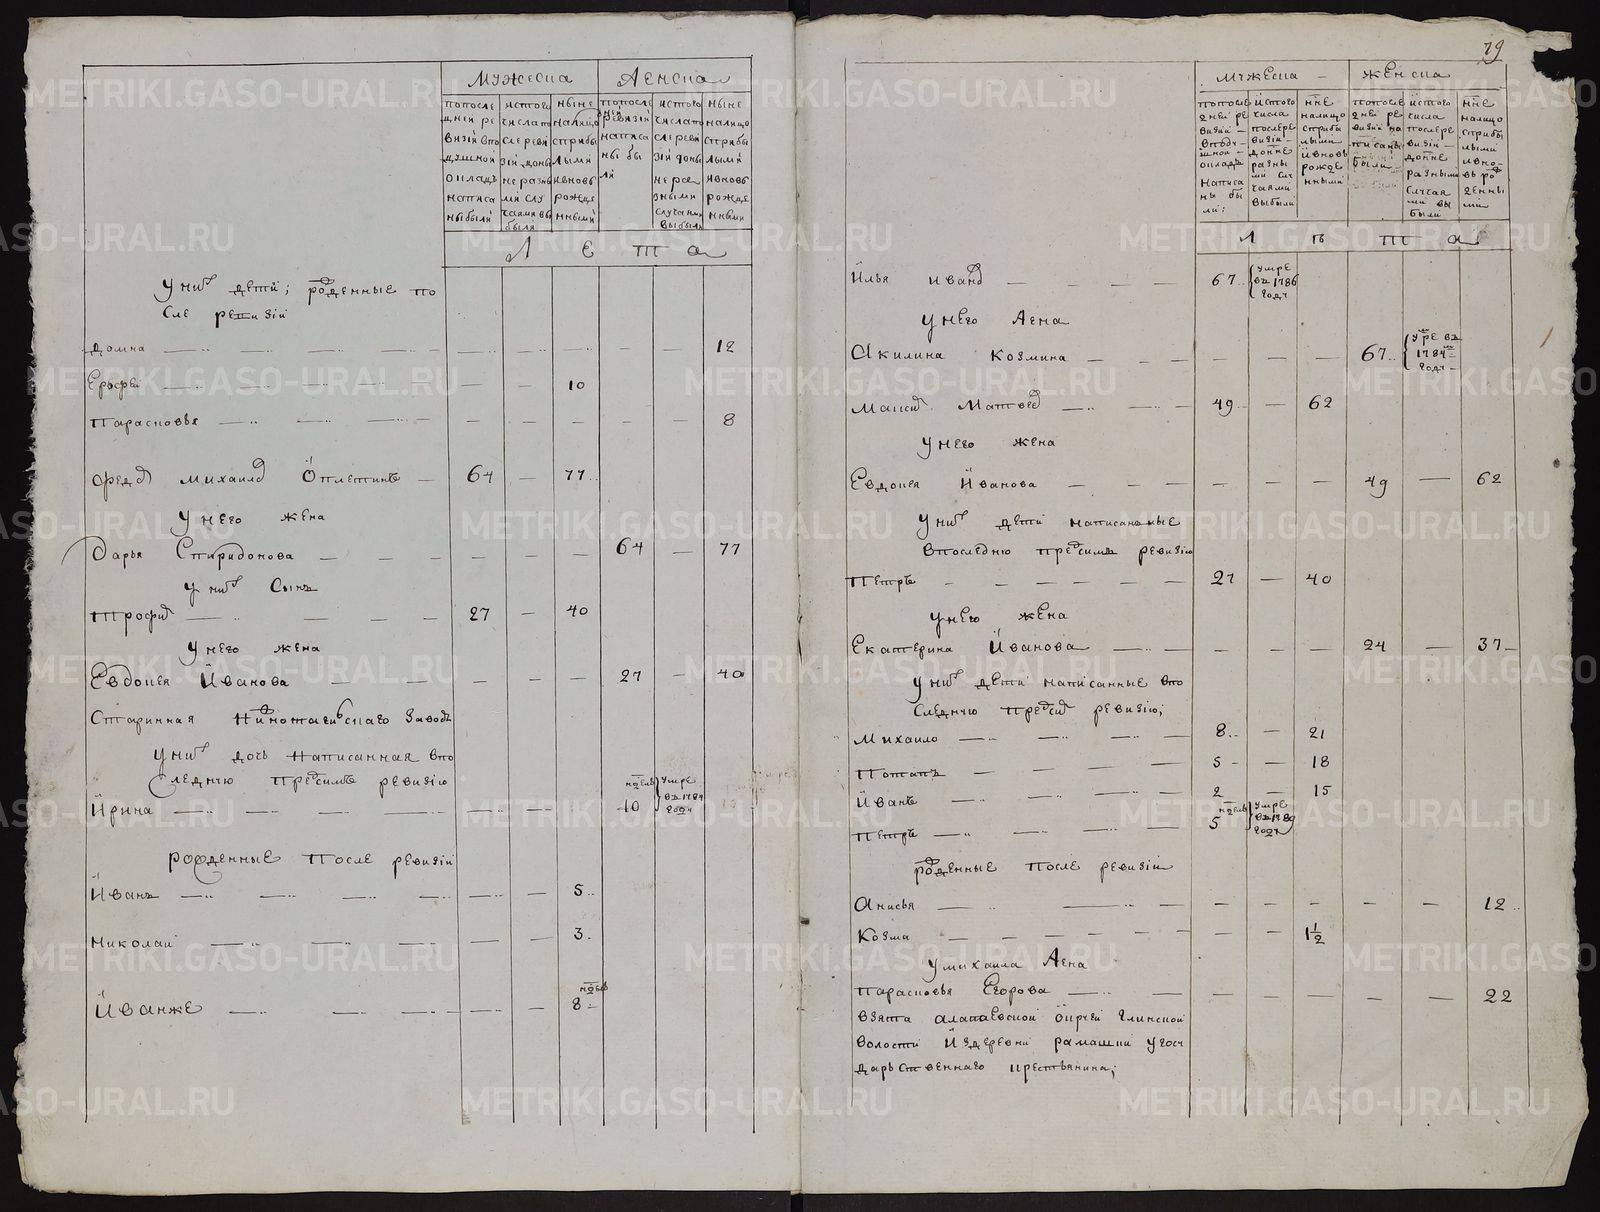 мужеска женска
попосле
дней ре
визiи впо
душной
окладъ
написа
ны были
истого
числа по
сле реви
зiи доны
не разны
ми слу
чаями вы
были
ныне
налицо
сприбы
лыми
ивновь
рожде
нными
попосле
дней
ревизiи
написа
ны бы
ли
истого
числапо
сле реви
зiи доны
не раз
ными
случаями
выбыли
ныне
налицо
сприбы
лыми
ивновь
рожде
нными
Л е т а
у них дети; рожденные по
сле ревизiи
Домна 12
Ерофей 10
Парасковья 8
Федор михаилов Оплетинъ 64 77
у него жена
Дарья Спиридонова 64 77
у них Сынъ
Трофим 27 40
у него жена
Евдокея Иванова 27 40
Старинная Нижнотагильскаго завода
у них дочь написанная впо
следнюю предсимъ ревизiю
Ирина 10 недель умре въ 1784 году
рожденные после ревизiи
Иванъ 5
Николай 3
Иванже 8 недель
79
мужеска женска
попосле
дней ре
визiи
вподу
шной
окладъ
написа
ны бы
ли:
истого
числа
послере
визiи
доне
разны
ми слу
чаями
выбыли
нне
налицо
сприбы
лыми
ивновь
рожде
нными
попосле
дней ре
визiи на
писаны
были
истого
числа
послере
визiи
доне
разными
случая
ми вы
были
нне
налицо
сприбы
лыми
ивно
вь ро
жденны
ми
Л ѣ т а
Илья иванов 67 умре въ 1786 году
у него жена
Акилина Козмина 67 умре въ 1784м году
Максим Матвеев 49 62
у него жена
Евдокея Иванова 49 62
у них дети написанные
впоследнюю предсимъ ревизiю
Петръ 27 40
у него жена
Екатерина Иванова 24 37
у них дети написанные впо
следнюю предсим ревизiю;
Михаило 8 21
Потапъ 5 18
Иванъ 2 15
Петръ 5 недель умре въ 1782 году
рожденные после ревизiи
Анисья 12
Козма 1½
у михаила жена
Парасковья Егорова 22
взята алапаевской окру­ги Глинской
волости издеревни рамашки угосу
дарственнаго крестьянина;